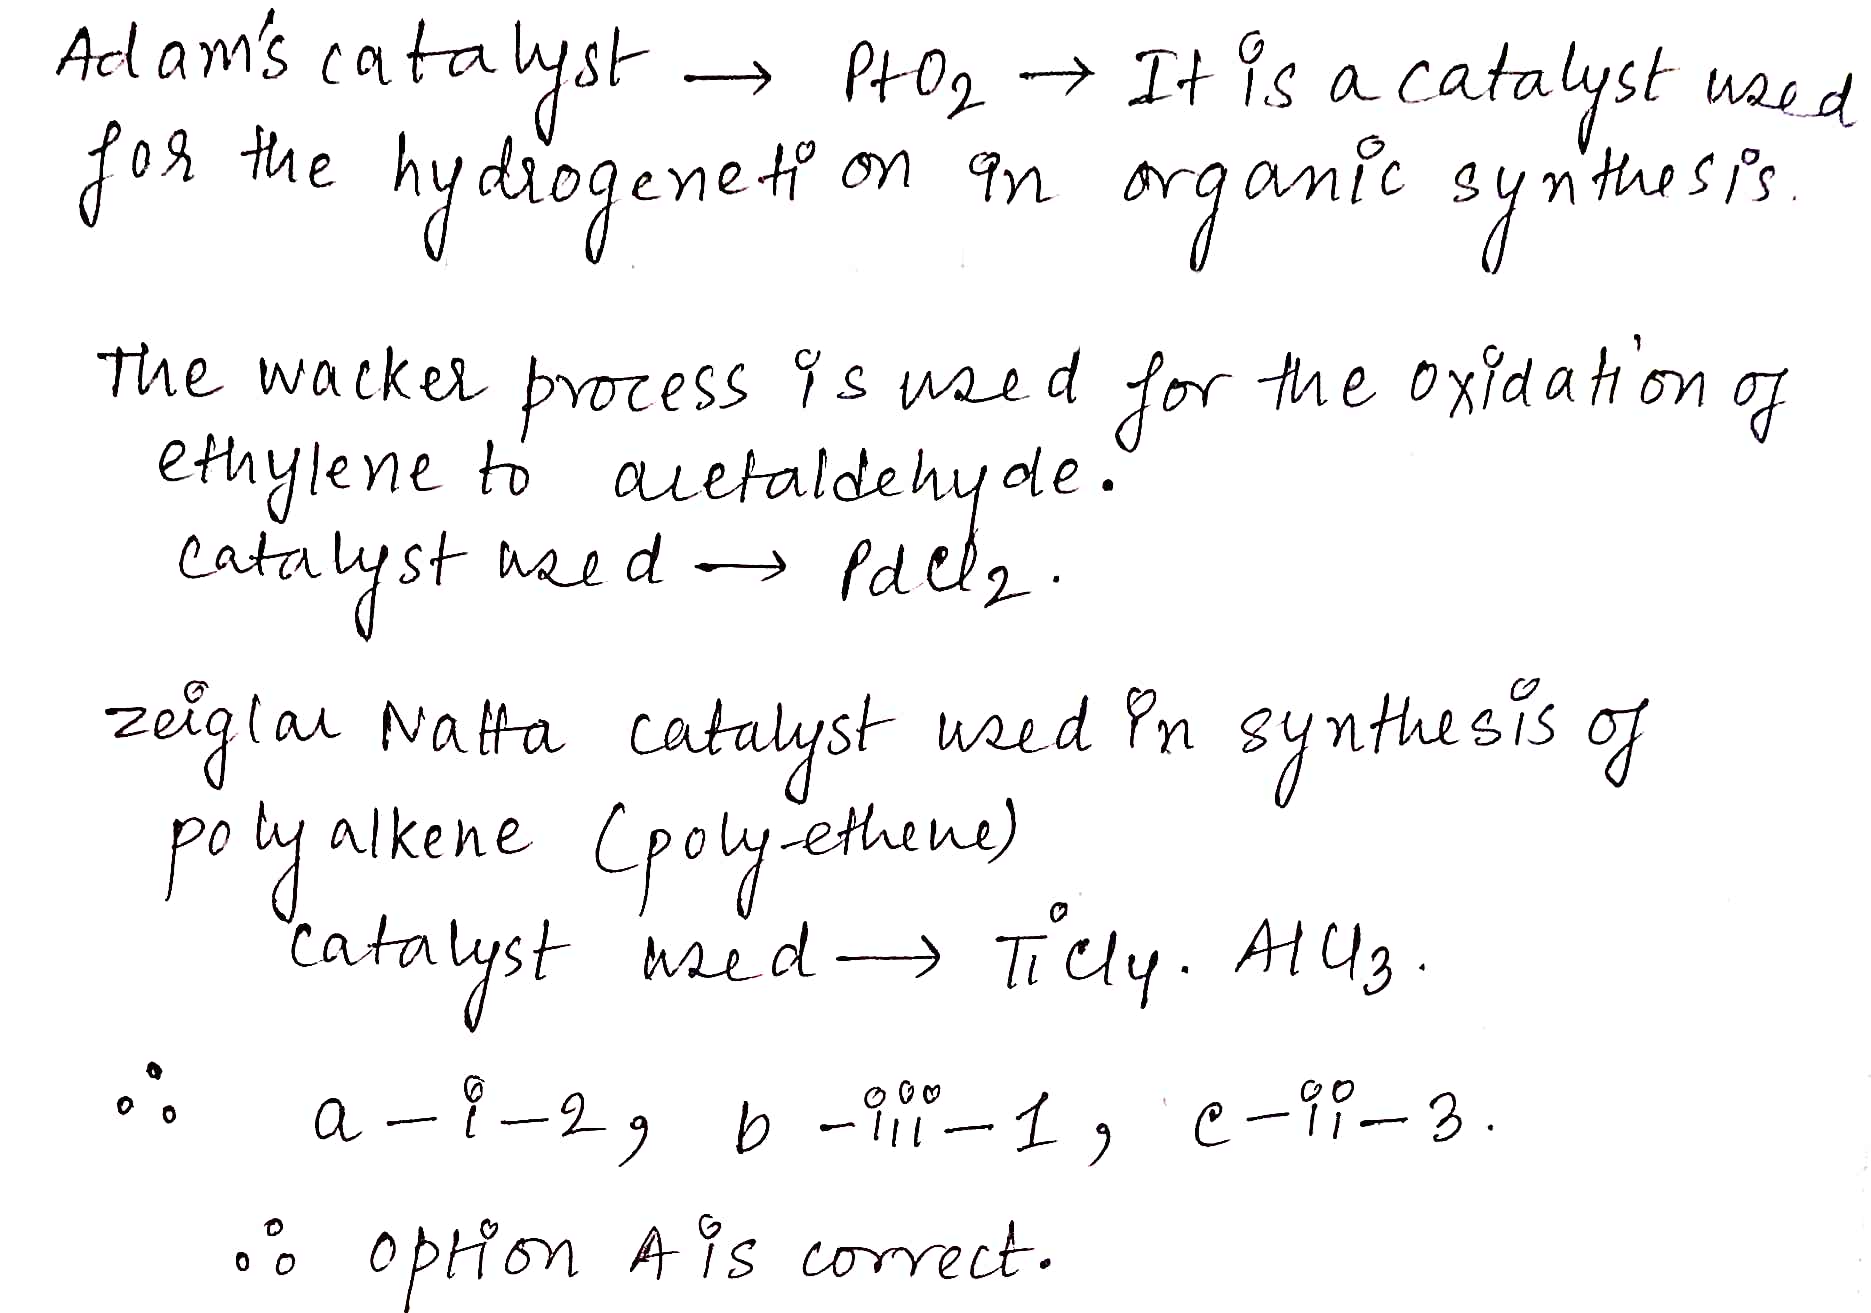 Adam's catalyst → PtO2 → It is a catalyst used
for the hydrogenetion in organic synthesis.
The wacker process is used for the oxidation of
ethylene to acetaldehyde.
catalyst used → PdCl2.
zeiglar Natta catalyst used in synthesis of
polyalkene (poly-ethene)
catalyst used → TiCl4. AlCl3.
∴ a - i - 2, b - iii - 1, c - ii - 3.
∴ option A is correct.